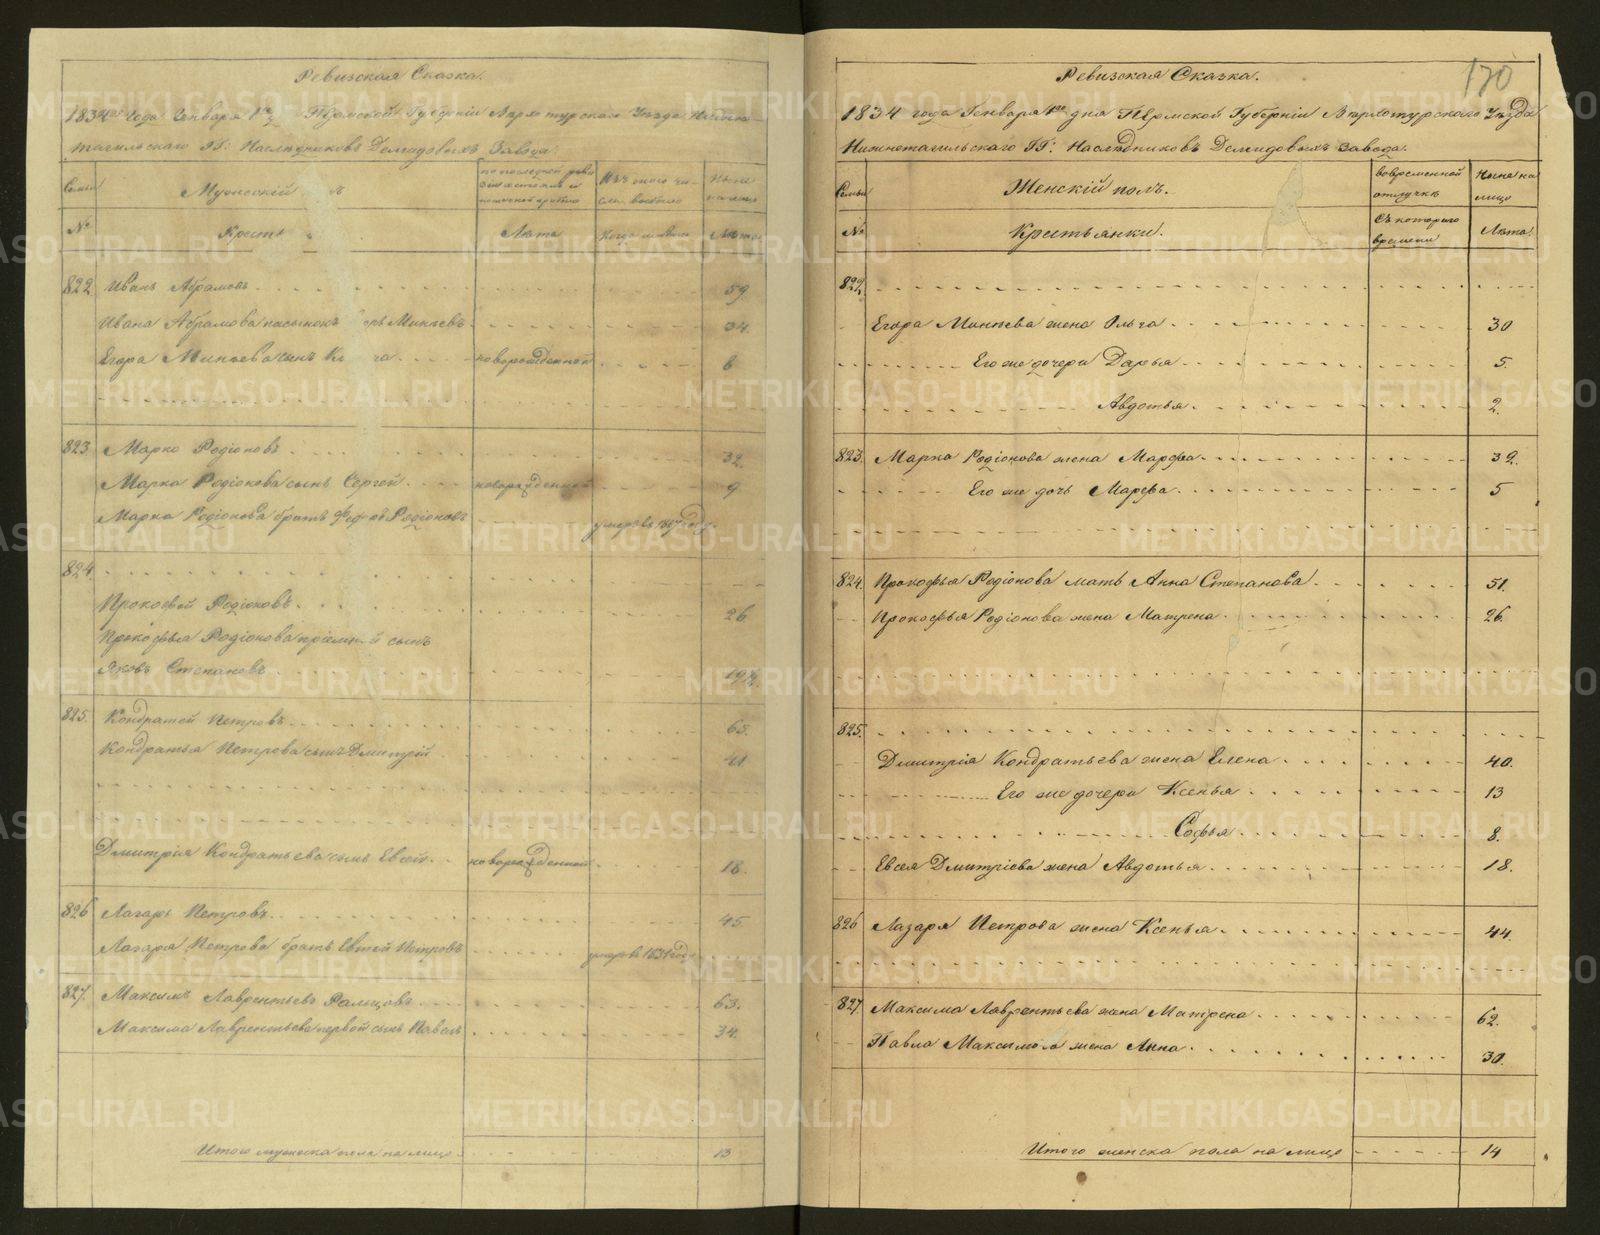 Ревизская Сказка.
1834го Года Генваря 1го Пермской Губерніи Верхотурскаго Уезда Нижне
тагильскаго ГГ: Наслѣдниковъ Демидовыхъ Завода.
Семьи
Мужескій
по последней реви
зіи состояло и
Изъ того чи-
сла выбыло
Ныне
на лицо
№
Кресть
Лѣта
Когда именно
Лѣта
822. Иванъ Абрамовъ 59
Ивана Абрамова пасынокъ Минѣевъ 34.
Егора Минѣева сынъ новорожденной 6
823. Марко Родіоновъ 32.
Марка Родіонова сынъ Сергей новорожденной 9
Марка Родіонова братъ Родіоновъ умеръ въ году
824.
Прокофей Родіоновъ 26
Прокофья Родіонова пріемн й сынъ
Яковъ Степановъ
825. Кондратей Петровъ 65.
Кондратья Петрова сынъ Дмитрей 41
Дмитрия Кондратьева сынъ Евсей новорожденной 18.
826 Лазарь Петровъ 45
Лазаря Петрова братъ Евтей Петровъ умеръ въ 1831 году
827. Максимъ Лаврентьевъ 63.
Максима Лаврентьева первой сынъ Павелъ 34.
Итого мужеска пола на лицо 13
170
Ревизская Сказка.
1834 года Генваря 1го дня Пермской Губерніи Верхотурскаго Уезда
Нижнетагильскаго ГГ: Наслѣдниковъ Демидовыхъ Завода.
Семьи
Женскій полъ.
во временной
отлучкѣ
Ныне на
лицо
№
Крестьянки.
Съ котораго
времени
Лѣта.
822.
Егора Минѣева жена Ольга 30
Его же дочери Дарья 5.
Авдотья 2.
823. Марка Родіонова жена Марфа 32.
Его же дочь Марфа 5
824. Прокофья Родіонова мать Анна Степанова 51.
Прокофья Родіонова жена Матрена 26.
825.
Дмитрія Кондратьева жена Елена 40.
Его же дочери Ксенья 13
Софья 8.
Евсея Дмитріева жена Авдотья 18.
826 Лазаря Петрова жена Ксенья 44.
827. Максима Лаврентьева жена Матрена 62.
Павла Максимова жена Анна 30.
Итого женска пола на лицо 14
METRIKI.GASO-URAL.RU